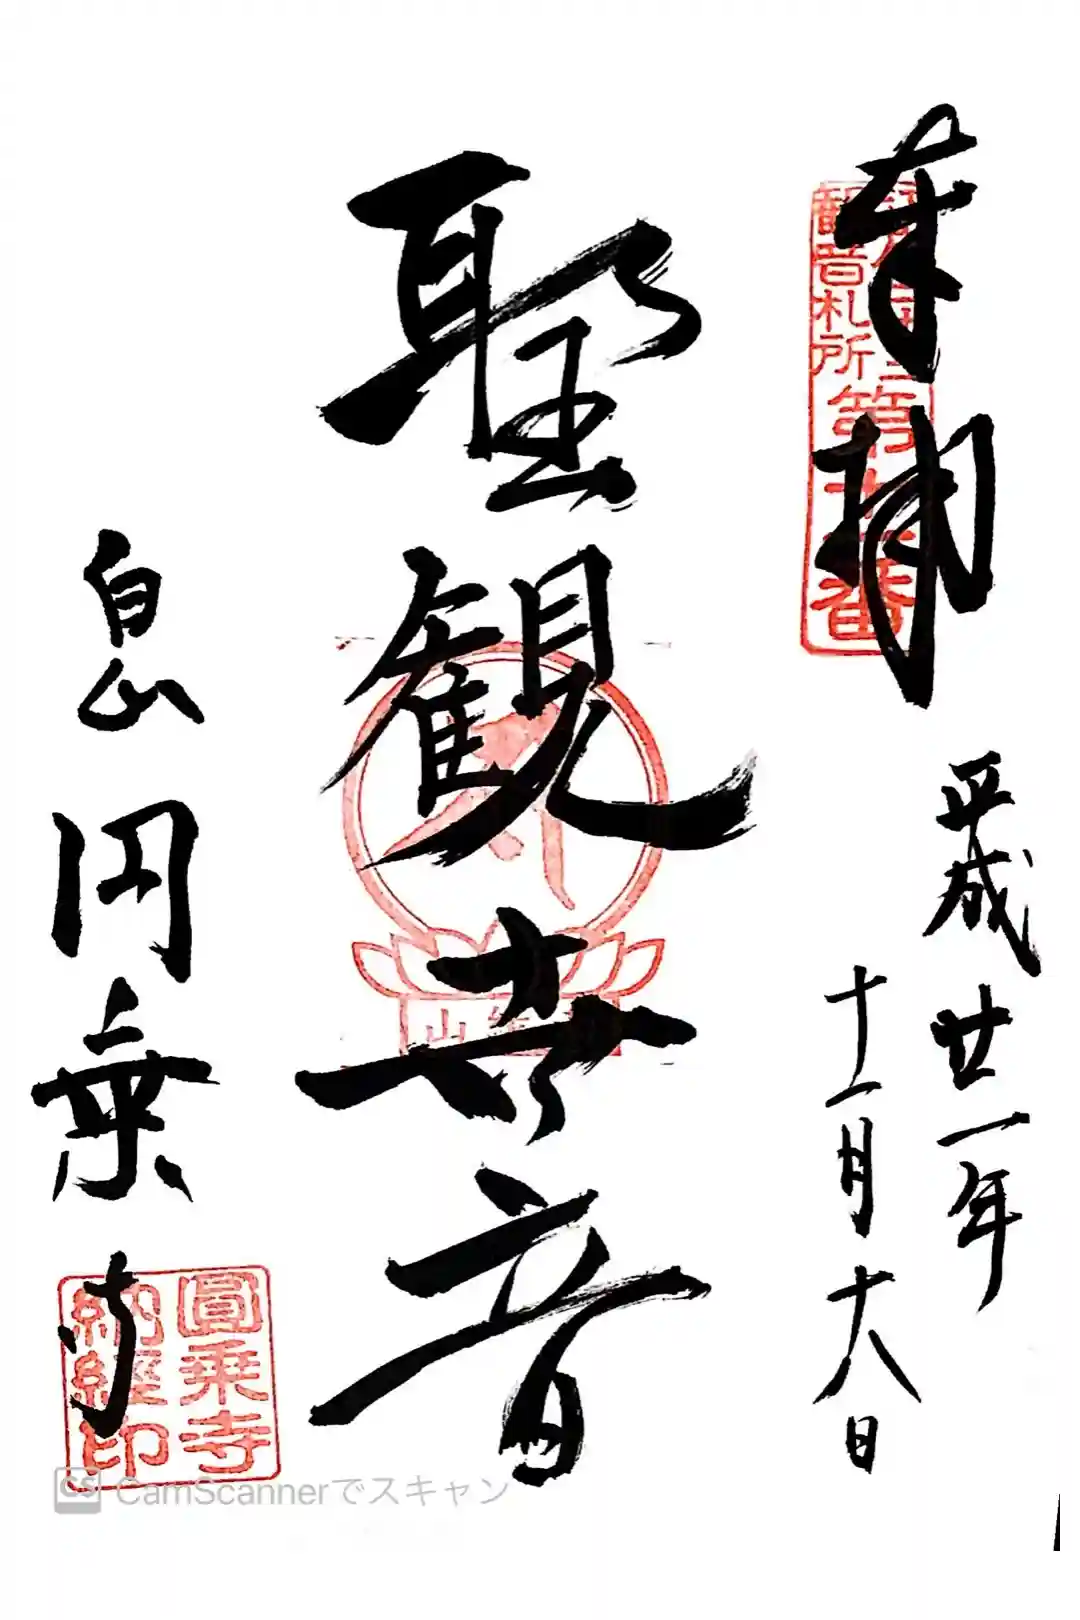 奉拝
平成廿一年
十一月十八日
聖観世音
円乗寺
観音札所
第
番
山
圓乗寺
納経印
CS CamScannerでスキャン